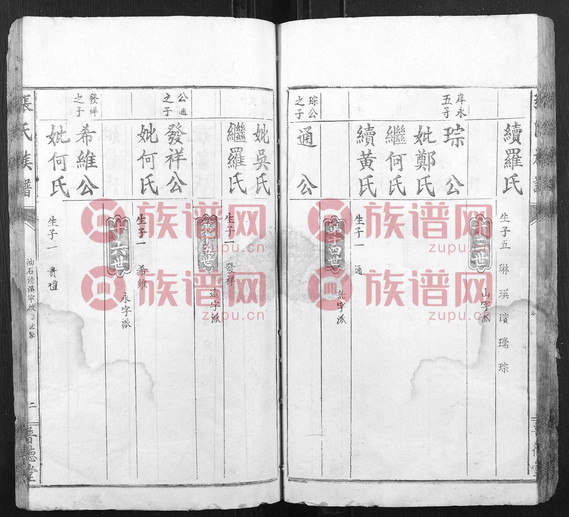 續羅氏
生子五 琳 瑛 璸 璐 琮
十三世
山字派
庠永五子
琮公
妣鄭氏
繼何氏
續黃氏
生子一 通
第十四世
琮公之子
通公
妣吳氏
繼羅氏
生子一 發祥
遠字派
公通之子
發祥公
妣何氏
生子一 希維
十六世
永字派
發祥之子
希維公
妣何氏
生子一
張氏族譜
二
族谱网
zupu.cn
族谱网
zupu.cn
族谱网
zupu.cn
族谱网
zupu.cn
族谱网
zupu.cn
族谱网
zupu.cn